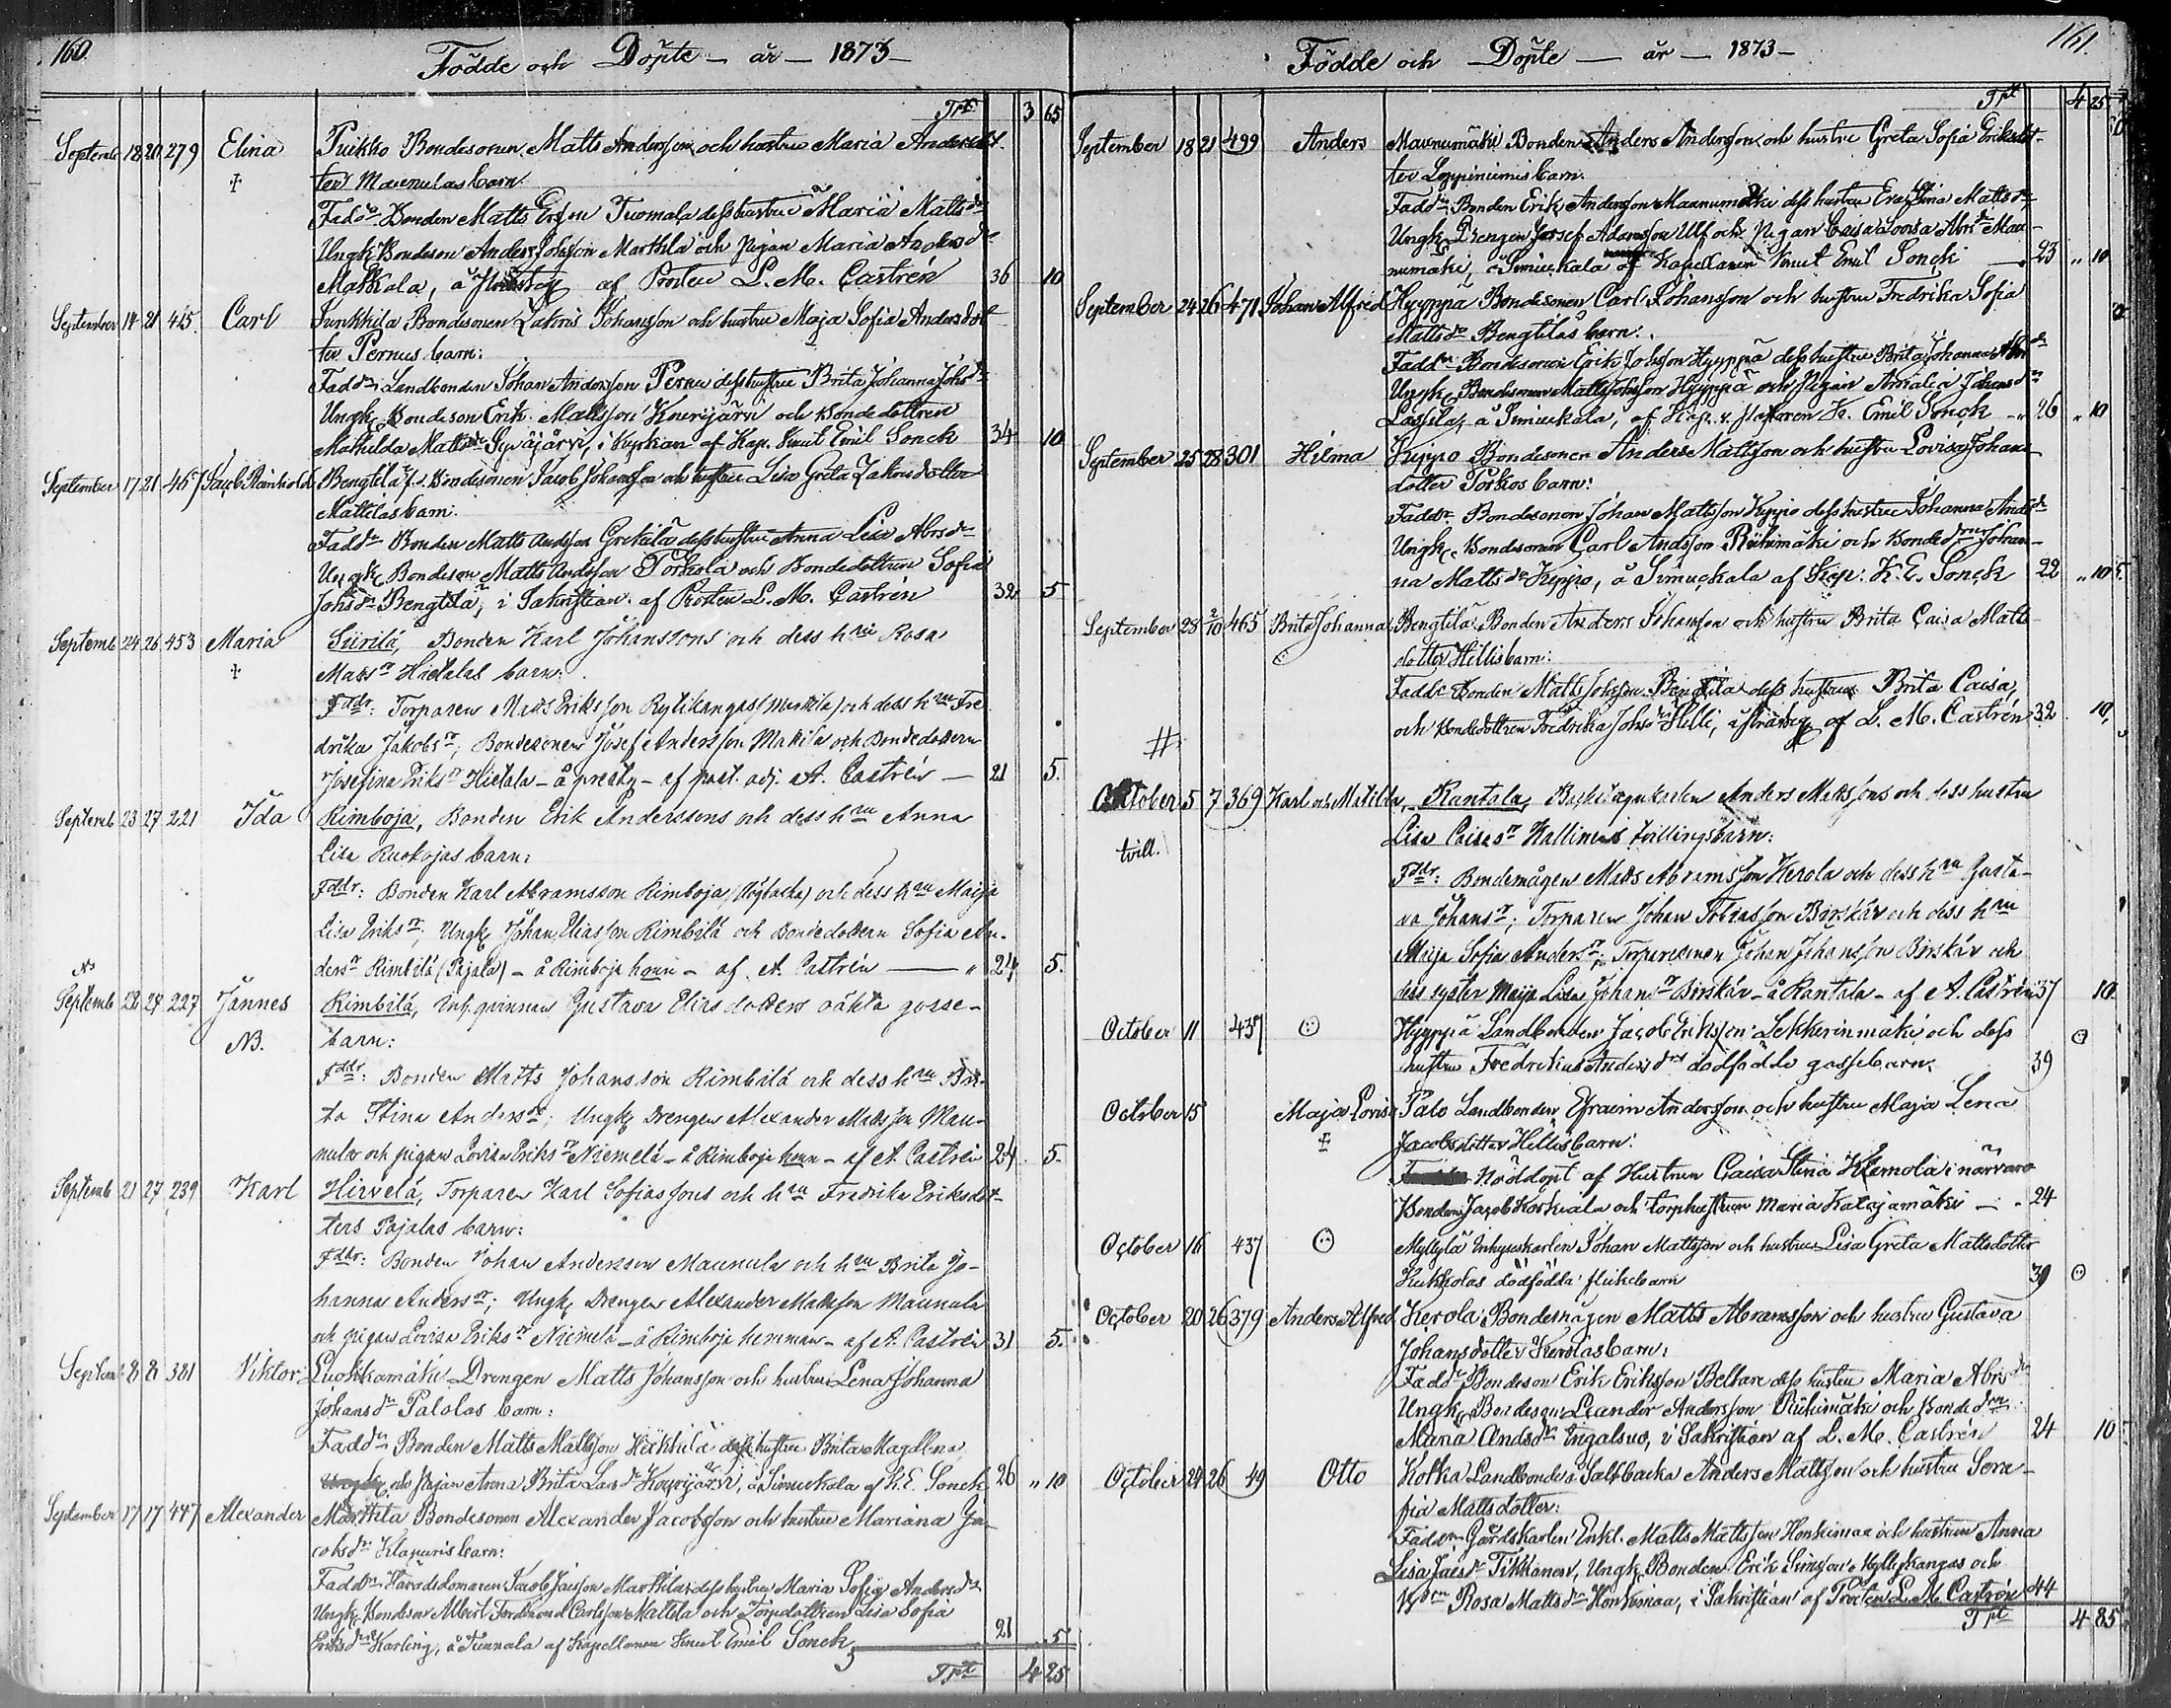 160.
Födde och Döpte — år — 1873 —
Trt 3 65
Septemb 18 20 279 Elina Puikko Bondesonen Matts Andersson och hustru Maria Andersdot-
‡ ter Maunulas barn.
Fadd: Bonden Matts Ersson Tuomala dess hustru Maria Mattsdr
Ungk. Bondeson Anders Johsson Marttila och Pigan Maria Andersdr
Mattala, å Prästeg af Prosten L. M. Castrén 36 10
September 14 21 415 Carl Junkkila Bondesonen Zakris Johansson och hustru Maja Sofia Andersdot-
ter Pernus barn:
Faddr: Landbonden Johan Andersson Pernu dess hustru Brita Johanna Johsdr
Ungk. Bondeson Erik Mattsson Kourijärvi och Bondedottren
Mathilda Mattsdr Syväjärvi, i kyrkan af Kap. Knut Emil Sonck 34 10
September 17 21 467 Jacob Reinhold Bengtilä Bondesonen Jacob Johansson och hustru Lisa Greta Zakrisdotter
Mattilas barn:
Faddr Bonden Matts Andsson Grekilä dess hustru Anna Lisa Abrsdr
Ungk. Bondeson Matts Andsson Torkola och Bondedottren Sofia
Johsdr Bengtilä, i Sakristian af Prosten L. M. Castrén 32 5
Septemb 24 26 453 Maria Siirilä, Bonden Karl Johanssons och dess hru Rosa
‡ Matsr Hietalas barn:
Fddr: Torparen Matts Eriksson Rytikangas (Mattila) och dess hru Fre
drika Jakobsr, Bondesonen Josef Andersson Mattila och Bondedottern
Josefina Eriksr Hietala – å prestg – af past. adj. A. Castrén — 21 5.
Septemb 23 27 221 Ida Rimboja, Bonden Erik Anderssons och dess hru Anna
Lisa Ruokojas barn:
Fddr: Bonden Karl Abramsson Rimboja (Högbacka) och dess hru Maija
Lisa Eriksr, Ungk. Johan Eliasson Rimbilä och Bondedottern Sofia An-
dersr Rimbilä (Pajala) – å Rimboja hemn – af A. Castrén — " 24 5.
Septemb 22 27 227 Jannes Rimbilä, Inh. qvinnan Gustava Eliasdotters oäkta gosse-
NB. barn:
Fddr: Bonden Matts Johansson Rimbilä och dess hru Bri-
ta Stina Andersr, Ungk. Drengen Alexander Mattsson Mau-
nula och pigan Lovisa Eriksr Niemelä – å Rimboja hemn – af A. Castrén 24 5.
Septemb 21 27 239 Karl Hirvelä, Torparen Karl Sofiassons och hru Fredrika Eriksdot-
ters Pajalas barn:
Fddr: Bonden Johan Andersson Maunula och hru Brita Jo-
hanna Andersr; Ungk. Drengen Alexander Mattsson Maunula
och pigan Lovisa Eriksr Niemelä – å Rimboja hemman – af A. Castrén 31 5.
Septem 8 8 381 Viktor Luokkamäki Drengen Matts Johansson och hustru Lena Johanna
Johansdr Palolas barn:
Faddr Bonden Matts Mattsson Häkkilä dess hustru Brita Magdlena
och Pigan Anna Brita Larsdr Kouvijärvi, å Simuckala af K. E. Sonck 26 " 10
September 17 17 447 Alexander Marttila Bondesonen Alexander Jacobsson och hustru Mariana Ja-
cobsdr Klapuris barn:
Faddr Häradsdomaren Jacob Jacsson Marttila dess hustru Maria Sofia Andersdr
Ungk. Bondeson Albert Ferdinand Carlsson Mattila och Torpdottren Lisa Sofia
Eriksdr Karling, å Tunnala af Kapellanen Knut Emil Sonck 21 5
Trt 4 25
161.
Födde och Döpte — år — 1873 —
Trt 4 25
September 18 21 499 Anders Maunumäki Bonden Anders Andersson och hustru Greta Sofia Eriksdot-
ter Leppiniemis barn.
Faddr Bonden Erik Andersson Maunumäki dess hustru Eva Stina Mattsdr
Ungk. Drengen Josef Adamsson Ulf och Pigan Caisa Lovisa Abrsdr Mau-
numäki, å Simuckala af Kapellanen Knut Emil Sonck — 23 " 10
September 24 26 471 Johan Alfred Hyyppä Bondesonen Carl Johansson och hustru Fredrika Sofia
Mattsdr Bengtilas barn:
Faddr Bondesonen Erik Johsson Hyyppä dess hustru Brita Johanna Abrdr
Ungk. Bondesonen Matts Johsson Hyyppä och Pigan Amalia Johansdr
Lassila, å Simuckala, af Kap. K. Emil Sonck — " 26 " 10
September 25 28 301 Hilma Keppo Bondesonen Anders Mattsson och hustru Lovisa Johans
dotter Porkos barn:
Faddr. Bondesonen Johan Mattsson Keppo dess hustru Johanna Andsdr
Ungk. Bondesonen Carl Andsson Riihimäki och Bondedtrn Johan-
na Mattsdr Keppo, å Simuckala af Kap: K. E. Sonck 22 " 10
September 28 2/10 465 Brita Johanna Bengtilä Bonden Anders Johansson och hustru Brita Caisa Matts
dotter Hillis barn:
Faddr Bonden Matts Johsson Bengtila dess hustru Brita Caisa,
och Bondedottren Fredrika Johsdr Hilli, i Prästeg af L. M. Castrén 32 10,
#
October 5 7 369 Karl och Matilda, Rantala, Anders Matssons och dess hustru
tvill. Lisa Caisasr Kallinens tvillingsbarn:
Fddr: Bondemågen Matts Abramsson Kerola och dess hru Gusta-
va Johansr; Torparen Johan Tobiasson Birskär och dess hru
Maija Sofia Andersr; Torparesonen Johan Johansson Birskär och
dess syster Maija Lisa Johansr Birskär – å Rantala – af A. Castrén 37 10.
October 11 437 ☉ Hyyppä Landbonden Jacob Eriksson Lekkerinmäki och dess
hustru Fredrika Andersdrs dödfödde gossebarn. 39 ☉
October 15 Maja Lovisa Palo Landbonden Efraim Andersson och hustru Maja Lena
‡ Jacobsdotter Hillis barn:
Nöddöpt af Hustrun Caisa Stina Klemola i närvaro
Bonden Jacob Korkiala och torphustrun Maria Katajamäki — 24
October 16 437 ☉ Myllylä Inhyseskarlen Johan Mattsson och hustru Lisa Greta Mattsdotter
Kukkolas dödfödda flickebarn 39 ☉
October 20 26 379 Anders Alfred Kerola Bondemågen Matts Abramsson och hustru Gustava
Johansdotter Kerolas barn:
Faddr Bondeson Erik Eriksson Beltare dess hustru Maria Abrsdr
Ungk. Bondeson Leander Andersson Riihimäki och Bondedtrn
Maria Andsdr Engalsuo, i Sakristian af L. M. Castrén 24 10
October 24 26 49 Otto Kotka Landbonde å Salfbacka Anders Mattsson och hustru Sera-
fia Mattsdotter:
Faddr Gårdskarlen Enkl. Matts Mattsson Honkimaa och hustrun Anna
Lisa Jacsdr Tikkanen, Ungk. Bonden Erik Simsson Myllykangas och
Rosa Mattsdr Honkimaa, i Sakristian af Prosten L. M. Castrén 44
Trt 4 85